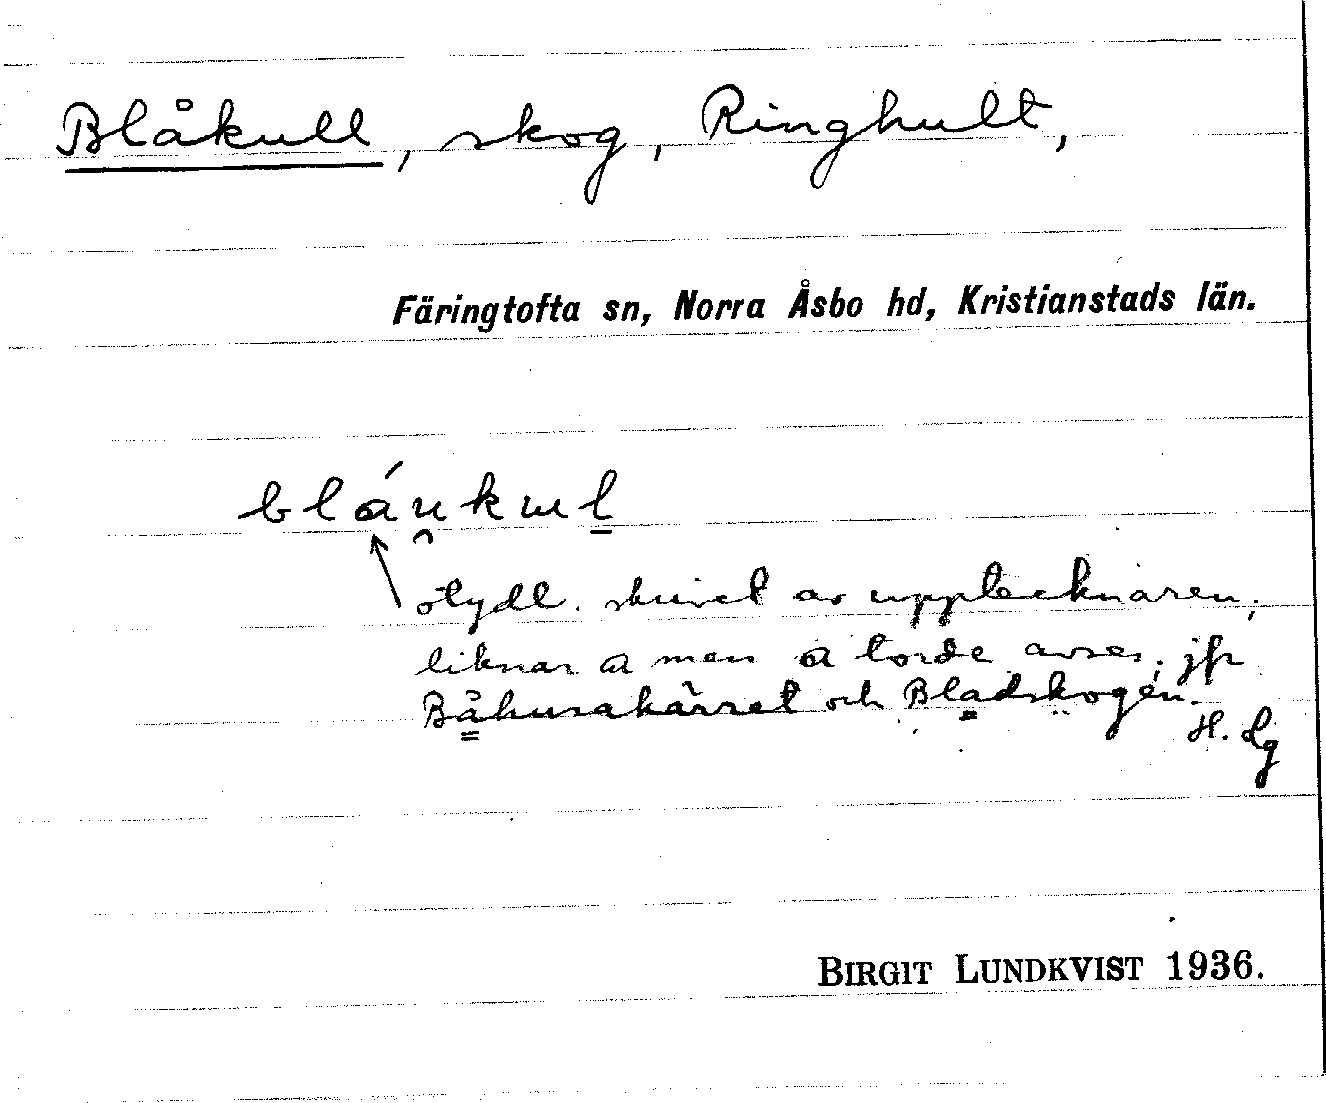 Blåkull, skog, Ringhult,
Färingtofta sn, Norra Åsbo hd, Kristianstads län.
blɑ́u̯kul
otydl. skrivet av upptecknaren,
liknar a men ɑ torde avses, jfr
Båhusakärret och Bladskogen.
H. Lg
BIRGIT LUNDKVIST 1936.